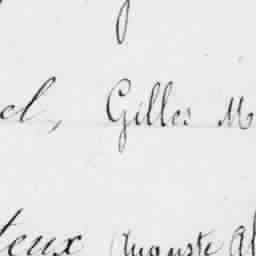 el, Gilles M
teux (Auguste Al